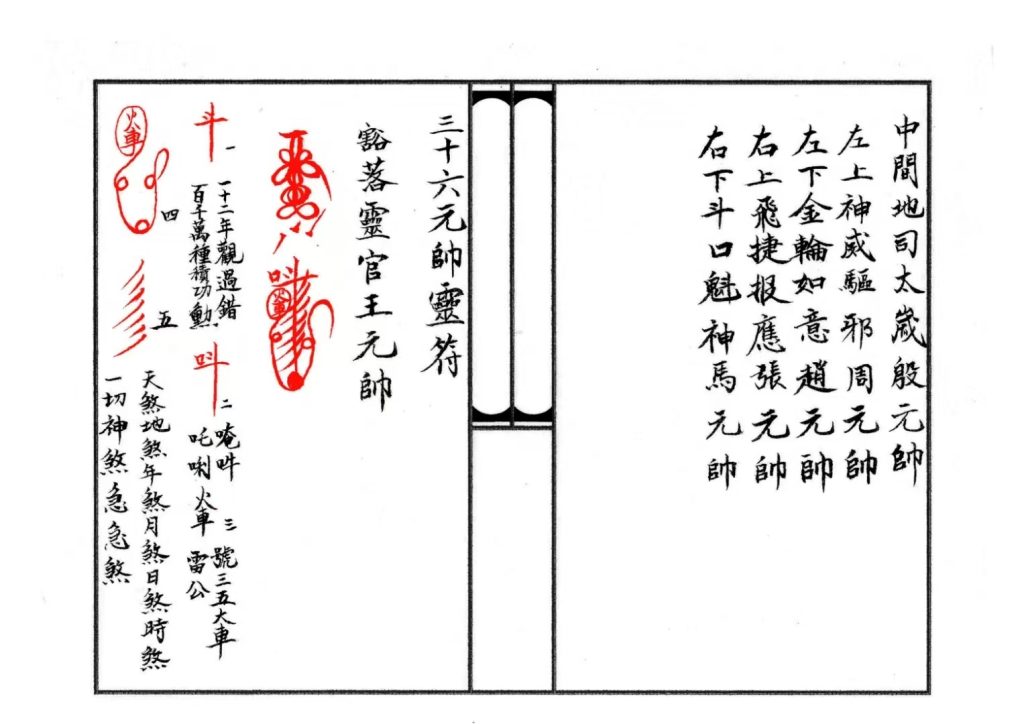 中間地司太歲殷元帥
左上神威驅邪周元帥
左下金輪如意趙元帥
右上飛捷报應張元帥
右下斗口魁神馬元帥
三十六元帥靈符
豁落靈官王元帥
八
吽
火車
斗
一
一十二年觀過錯
百千萬種積功勳
吽
二
唵吽
吒唎火車
三
號三五大車
雷公
火車
四
五
天煞地煞年煞月煞日煞時煞
一切神煞急急煞